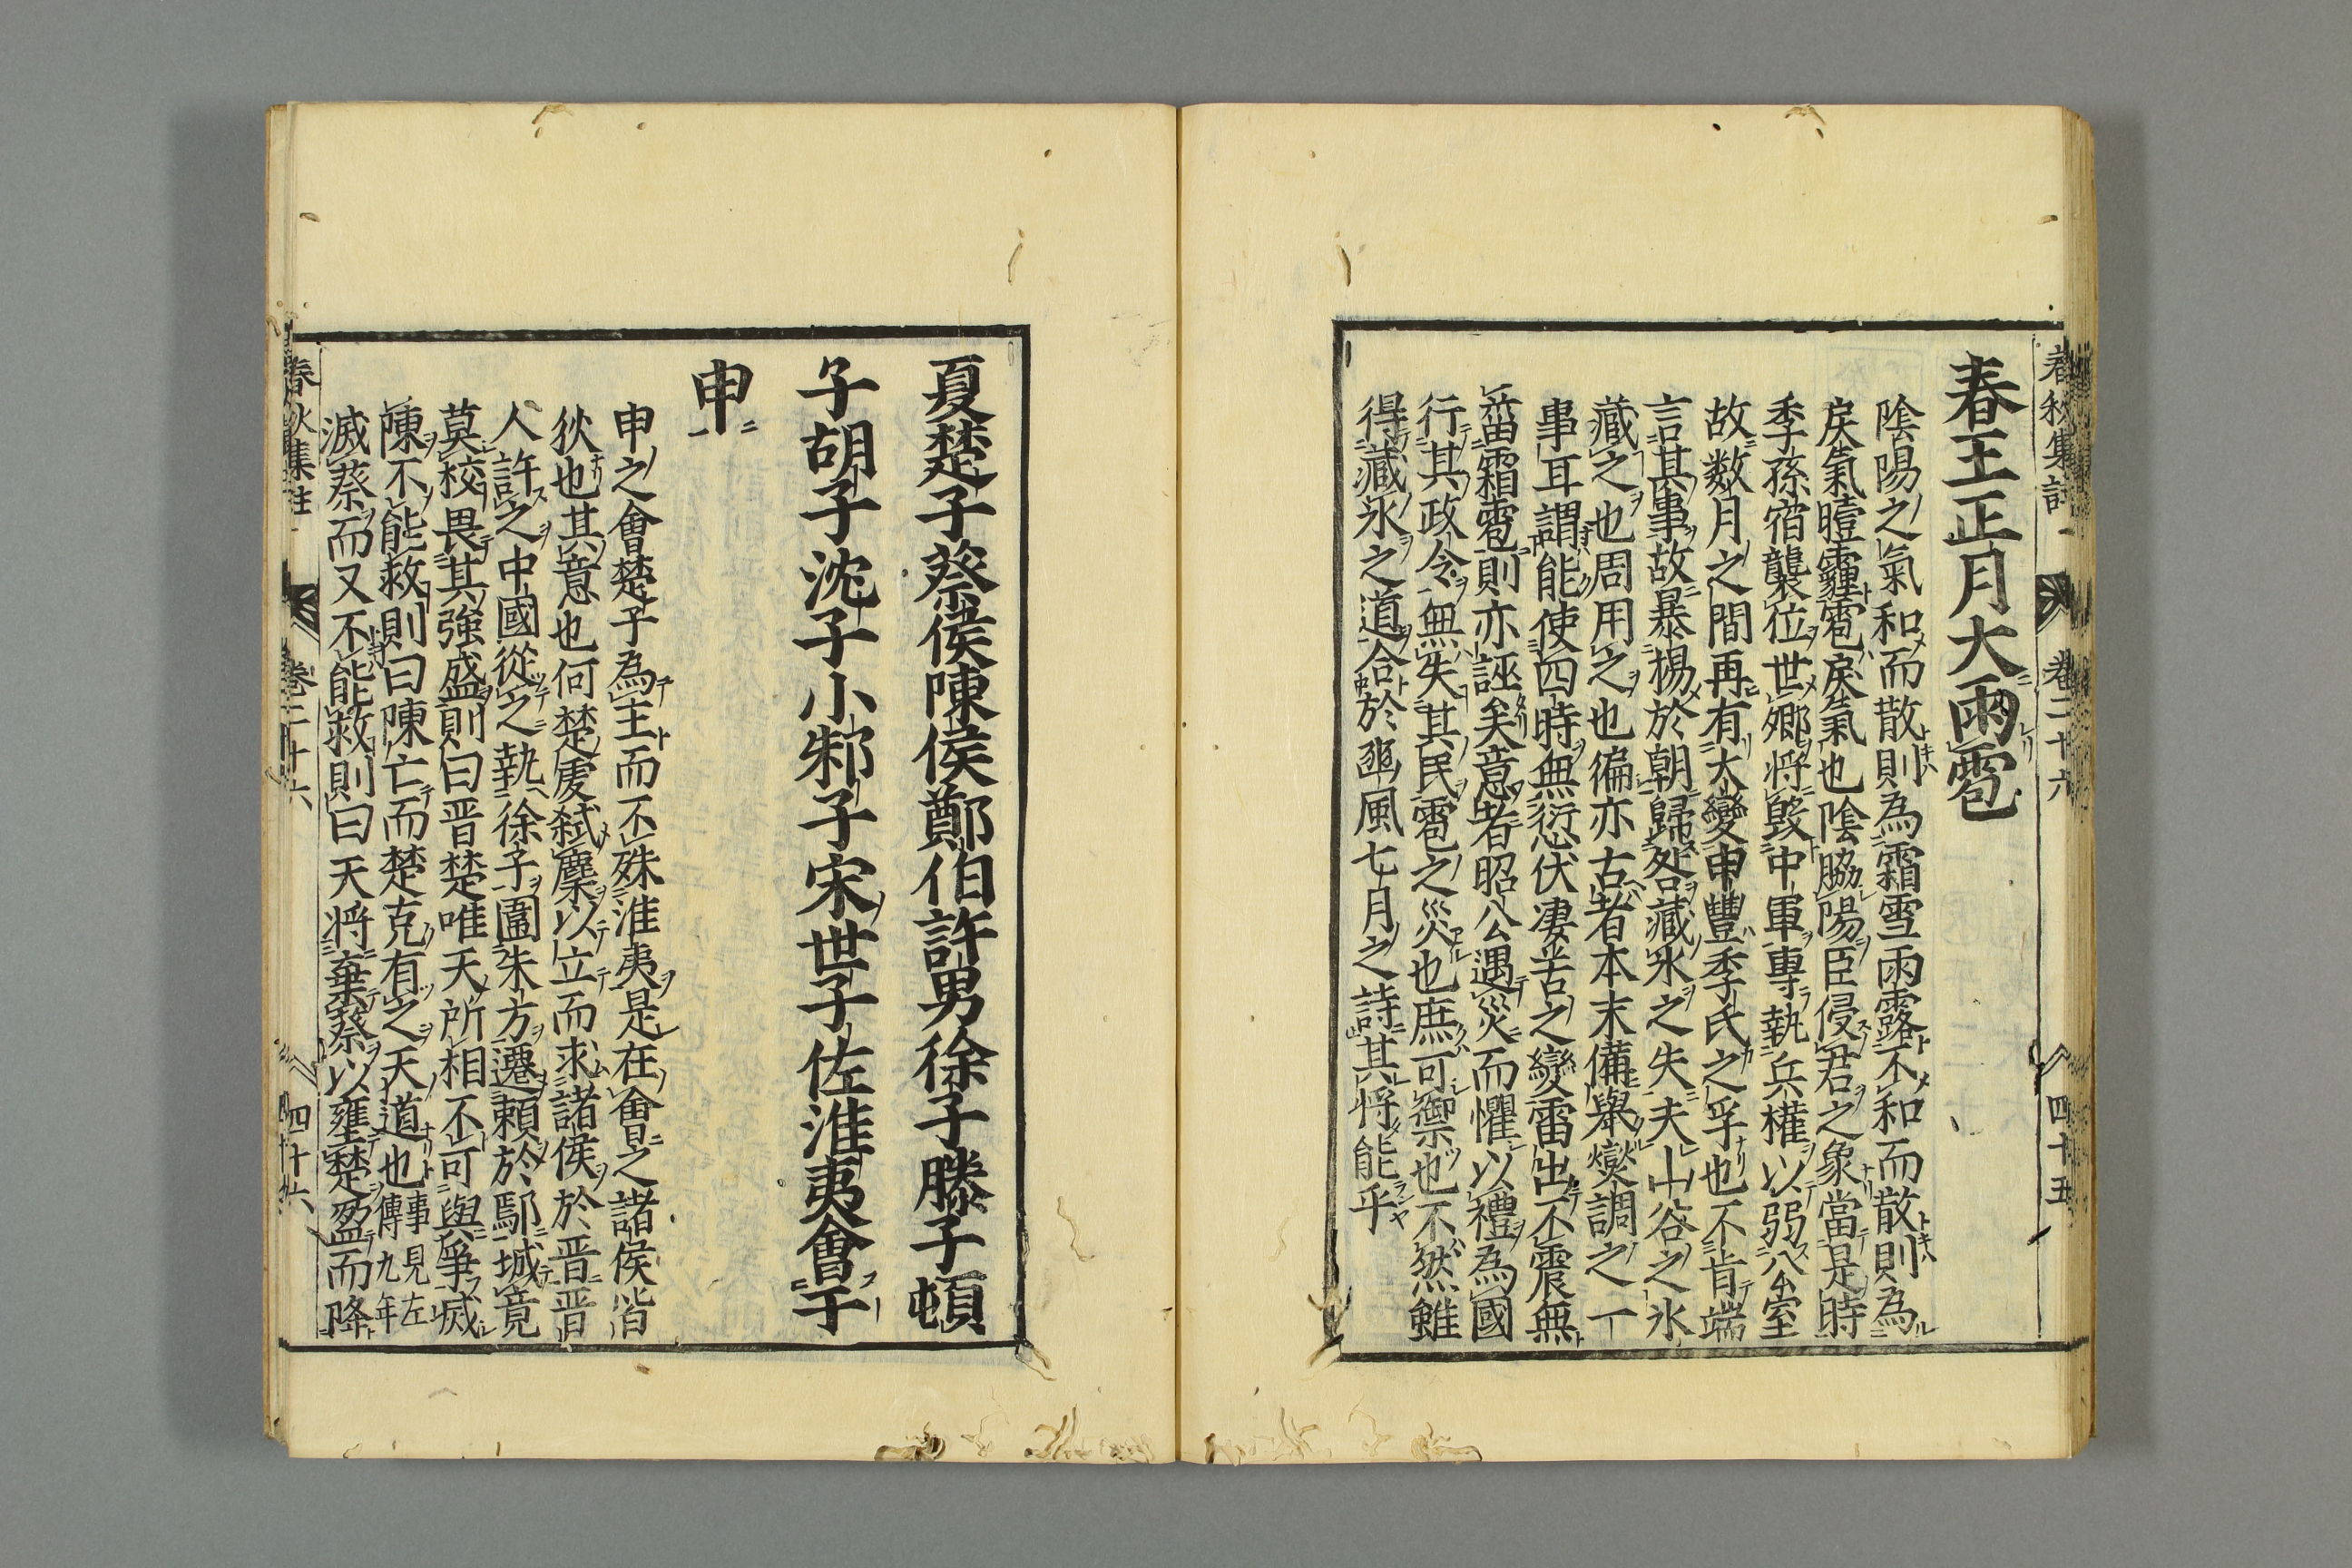 春秋集註 卷二十六 四十五
春王正月大雨雹
陰陽之氣和而散則為霜雪雨露不和而散則為
戾氣曀霾雹戾氣也陰脇陽臣侵君之象當是時
季孫宿襲位世卿将毀中軍專執兵權以弱公室
故数月之間再有大變申豐季氏之孚也不肯端
言其事故暴揚於朝歸咎藏氷之失夫山谷之氷
藏之也周用之也徧亦古者本末備舉爕調之一
事耳謂能使四時無愆伏凄苦之變雷出不震無
菑霜雹則亦誣矣意者昭公遇災而懼以禮為國
行其政令無失其民雹之災也庶可禦也不然雖
得藏氷之道合於豳風七月之詩其将能乎
夏楚子蔡侯陳侯鄭伯許男徐子滕子頓
子胡子沈子小邾子宋世子佐淮夷會于
申
申之會楚子為主而不殊淮夷是在會之諸侯皆
狄也其意也何楚虔弑麇以立而求諸侯於晋晋
人許之中國從之執徐子圍朱方遷頼於鄢城竟
莫校畏其強盛則曰晋楚唯天所相不可與爭滅
陳不能救則曰陳亡而楚克有之天道也事見左傳九年
滅蔡而又不能救則曰天将棄蔡以壅楚盈而降
春秋集註 卷二十六 四十六